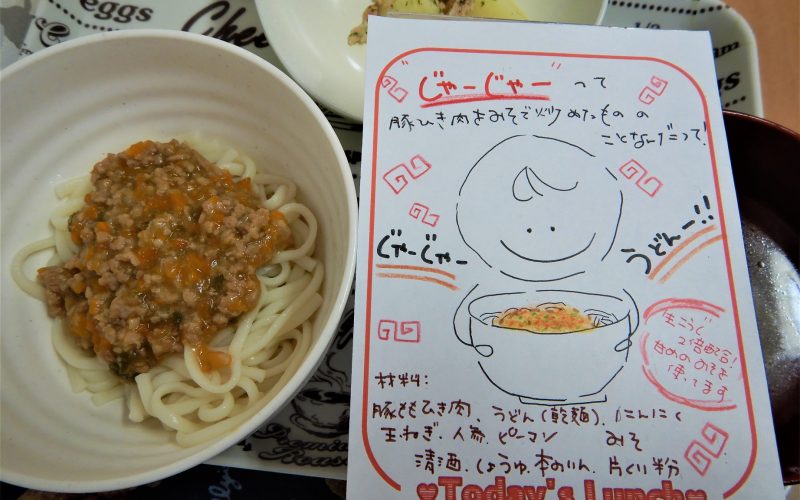 eggs
Chee
eggs
"じゃーじゃー" って
豚ひき肉をみそで炒めたものの
ことなんだって!
じゃーじゃー
うどんー!!
生こうじ
2倍配合!
甘めのみそを
使ってます
材料:
豚ももひき肉、うどん(乾麺)、にんにく
玉ねぎ、人参、ピーマン みそ
清酒、しょうゆ、本みりん、片くり粉
♥Today's Lunch♥